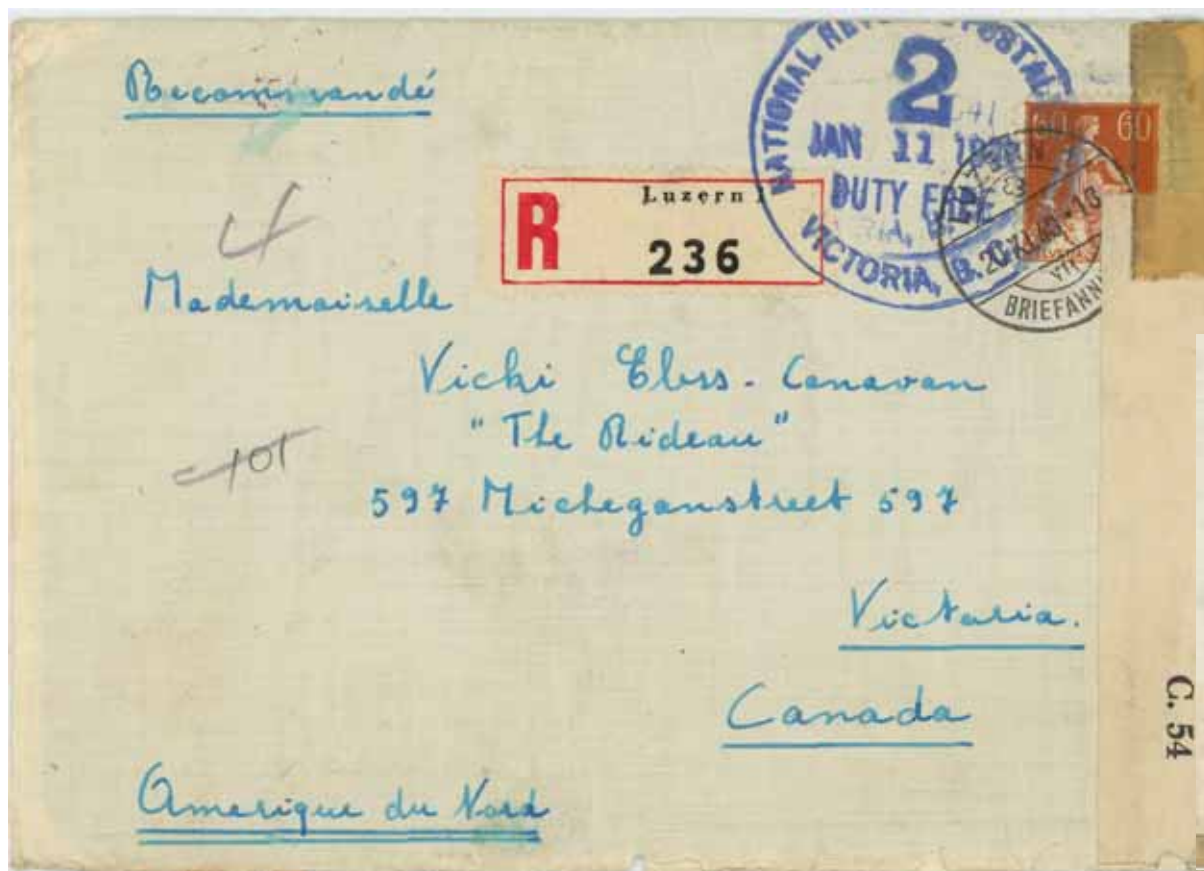 Recommandé
NATIONAL POSTAL
2
JAN 11
DUTY FREE
VICTORIA, B.C.
60 60
BRIEFANN
Luzern 1
R
236
4
Mademoiselle
Vicki Ebss-Canavan
"The Rideau"
101
597 Micheganstreet 597
Victoria.
Canada
C. 54
Amerique du Nord